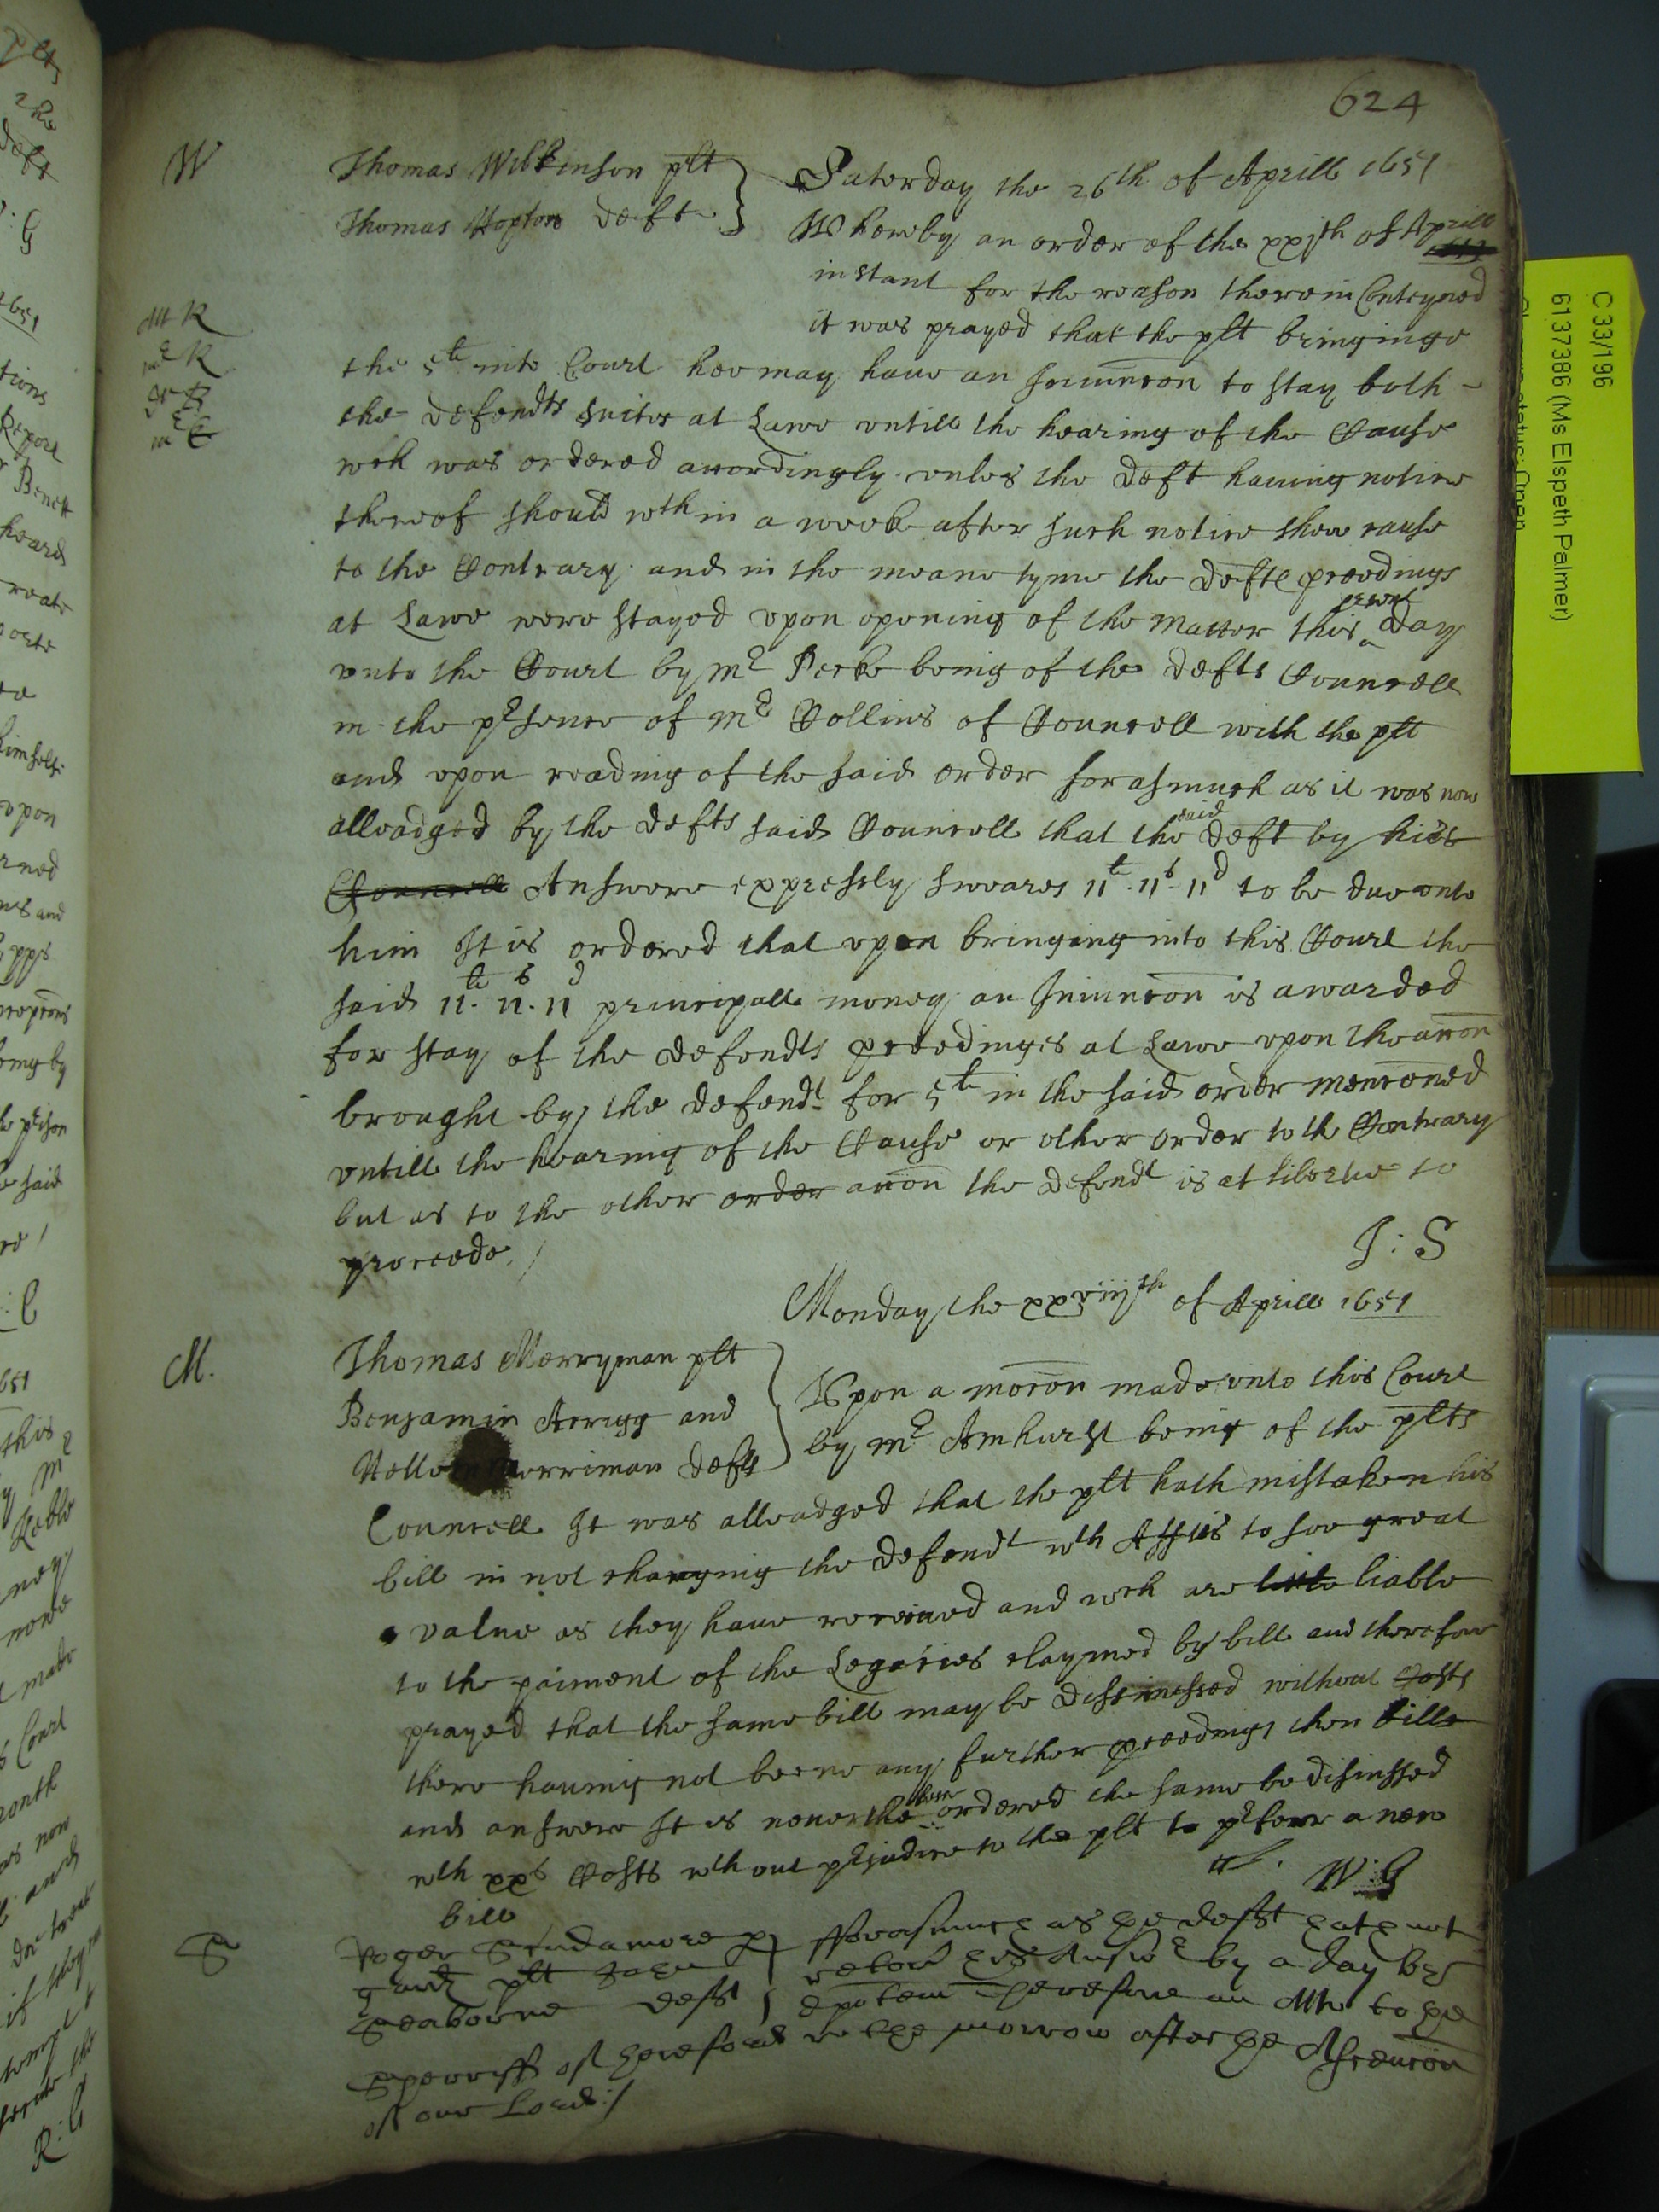 624
W
Thomas Wilkinson plt
Thomas Hopton deft
Saterday the 26th of Aprill 1651
Whereby an order of the xxjth of Aprill
instant for the reason therein Conteyned
it was prayed that the plt bringinge
Mr R
mr R
the 5li into Court hee may haue an Iniuncon to stay both
the defendts suites at Lawe vntill the hearing of the Cause
wch was ordered accordingly vnles the deft hauing notice
thereof should wthin a weeke after such notice shew cause
to the Contrary and in the meane tyme the defte proceedings
at Lawe were stayed vpon opening of the Matter this present day
vnto the Court by Mr Pecke being of the defts Councell
in the prsence of Mr Collins of Councell with the plt
and vpon reading of the said order forasmuch as it was now
alleadged by the defts said Councell that the said deft by his
Councell Answere expressly sweares 11li 11s 11d to be due vnto
him It is ordered that vpon bringing into this Court the
said 11li 11s 11d principall money an Iniuncon is awarded
for stay of the defendts proceedinges at Lawe vpon the accon
brought by the defendt for 5li in the said order menconed
vntill the hearing of the Cause or other order to the Contrary
but as to the other order accon the defendt is at libertie to
proceede /
J : S
Monday the xxviijth of Aprill 1651
M.
Thomas Merryman plt
Benjamin and
Merriman defts
Vpon a mocon made vnto this Court
by Mr Amhurst being of the plts
Councell It was alleadged that the plt hath mistaken his
bill in not charging the defendt wth Assetts to soe great
value as they haue receiued and wch are liable
to the paiment of the Legacies claymed by bill and therefore
prayed that the same bill may be dissmissed without Costs
there hauing not beene any further proceedings then bill
and answere It is neuertheles ordered the same be dismissed
wth xxs Costs wthout prejudice to the plt to prferr a new
bill
W : G
S
Roger Scudamore
plt John
Seaborne deft
fforasmuch as the deft hath not
retorn his Answr by a day by
dpotem Therefore an Atta to the
Sherriff of Hereford re the morrow after the Ascencon
of our Lord :/
C 33/196
6137386 (Ms Elspeth Palmer)